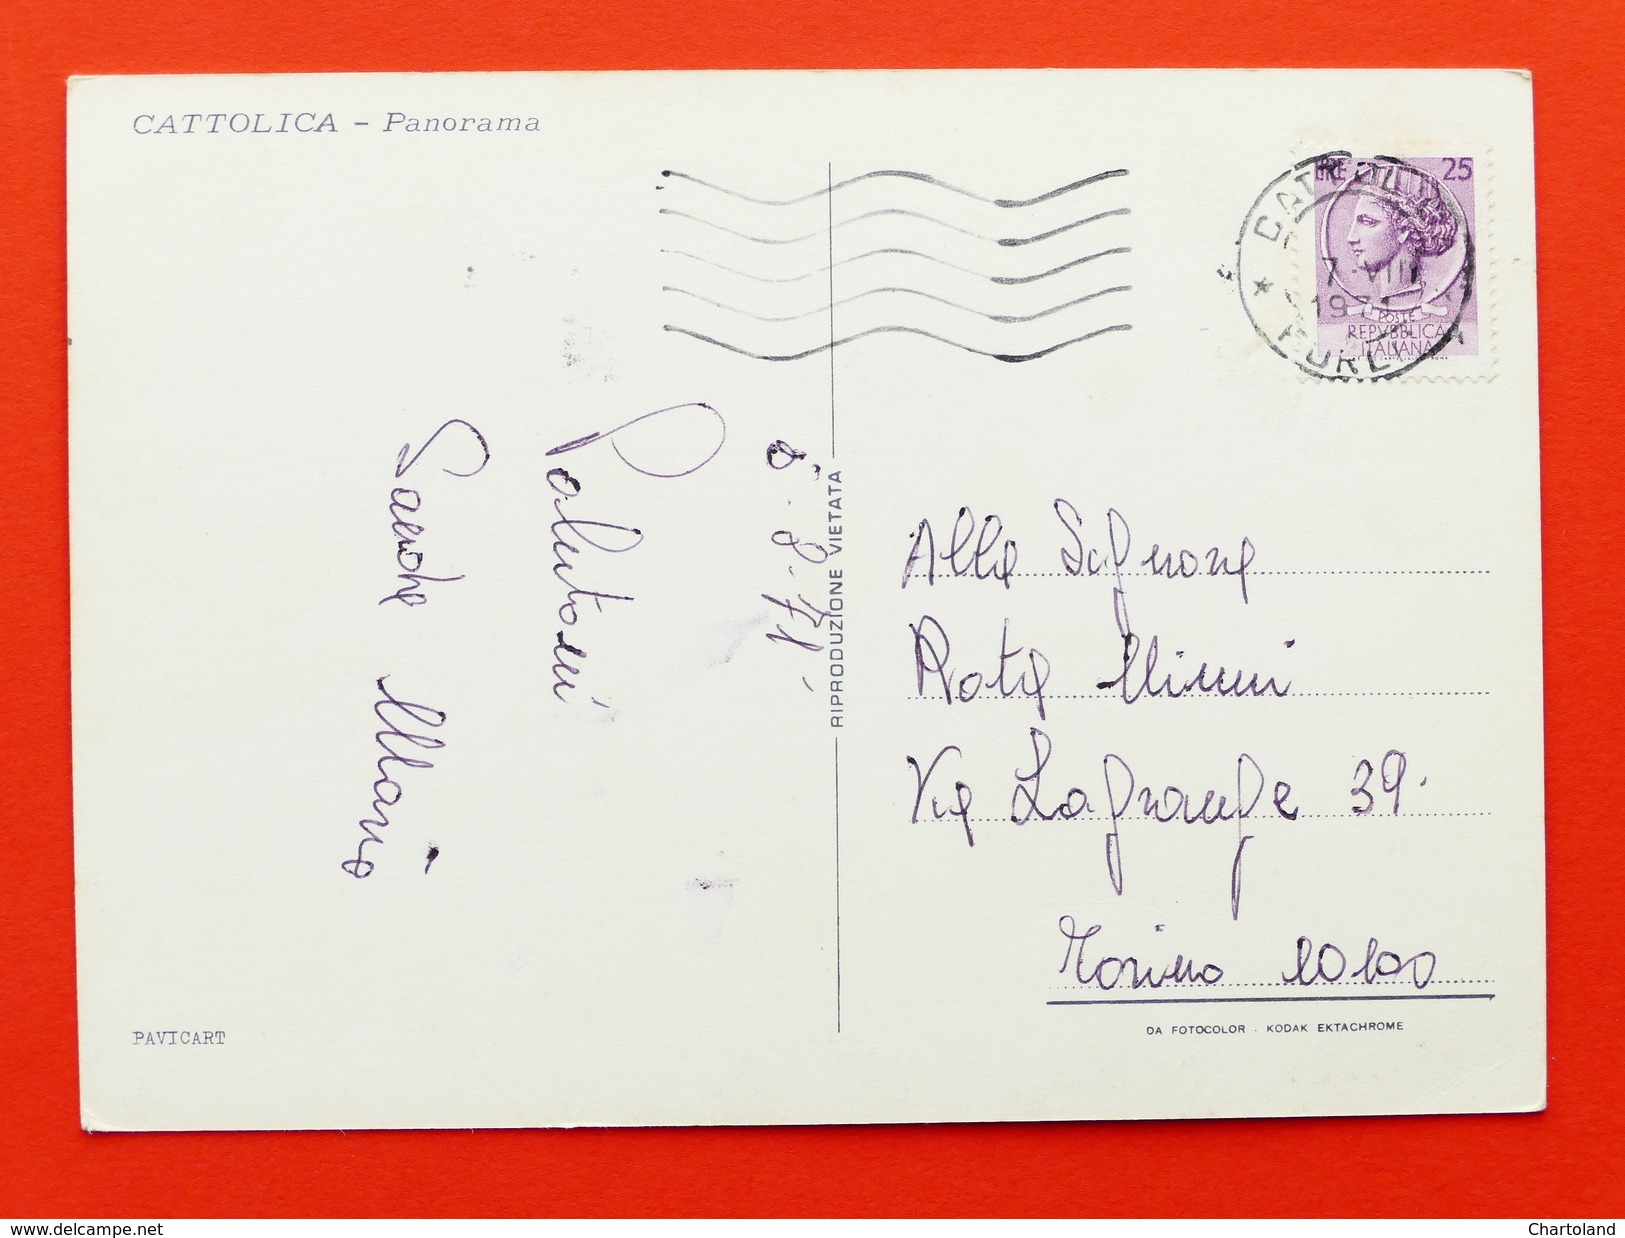 CATTOLICA - Panorama
LIRE 25
7-VIII
1971
POSTE
REPVBBLICA
ITALIANA
6.8.71
Salutoni
Sandra Mario
RIPRODUZIONE VIETATA
Alla Signora
Rota Minni
Via Lagrange 39.
Torino 10100
PAVICART
DA FOTOCOLOR - KODAK EKTACHROME
www.delcampe.net
Chartoland